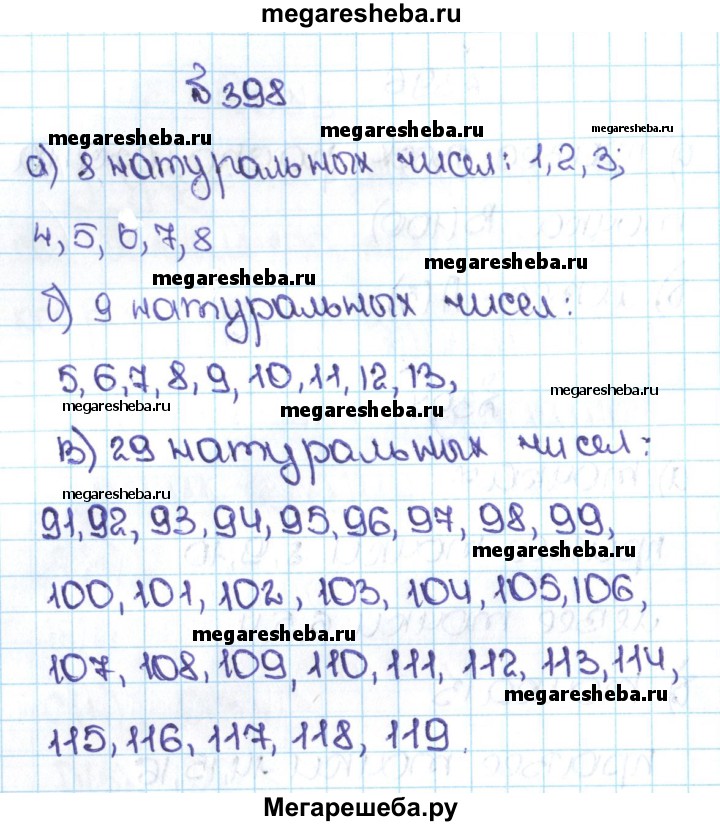 megaresheba.ru
№ 398
megaresheba.ru megaresheba.ru megaresheba.ru
а) 8 натуральных чисел: 1, 2, 3;
4, 5, 6, 7, 8
megaresheba.ru megaresheba.ru
б) 9 натуральных чисел:
5, 6, 7, 8, 9, 10, 11, 12, 13,
megaresheba.ru megaresheba.ru megaresheba.ru
в) 29 натуральных чисел:
megaresheba.ru
91, 92, 93, 94, 95, 96, 97, 98, 99,
megaresheba.ru
100, 101, 102, 103, 104, 105, 106,
megaresheba.ru
107, 108, 109, 110, 111, 112, 113, 114,
megaresheba.ru
115, 116, 117, 118, 119.
megaresheba.ru
Мегарешеба.ру